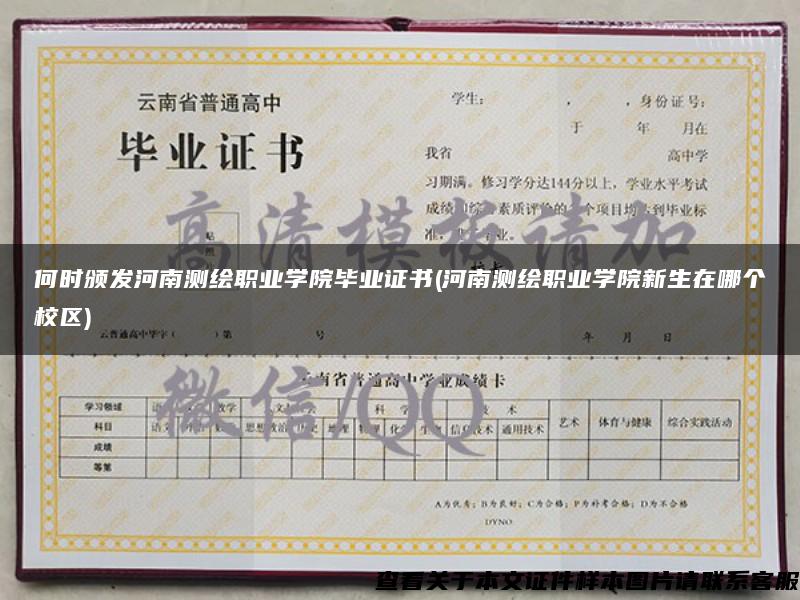 云南省普通高中
毕业证书
学生: , ,身份证号:
于 年 月在
我省 高中学
习期满。修习学分达144分以上,学业水平考试
成绩和综 素质评价的 个项目均达到毕业标
准,
高清模板请加
贴
何时颁发河南测绘职业学院毕业证书(河南测绘职业学院新生在哪个
校区)
云普通高中毕字( )第 号
年 月 日
云南省普通高中学业成绩卡
微信/QQ
学习领域 数学 科 学 技 术 艺术 体育与健康 综合实践活动
科目 语文 思想政治 历史 地理 物理 化学 生物 信息技术 通用技术
成绩
等第
A为优秀;B为良好;C为合格;P为补考合格;D为不合格
DYNO:
查看关于本文证件样本图片请联系客服